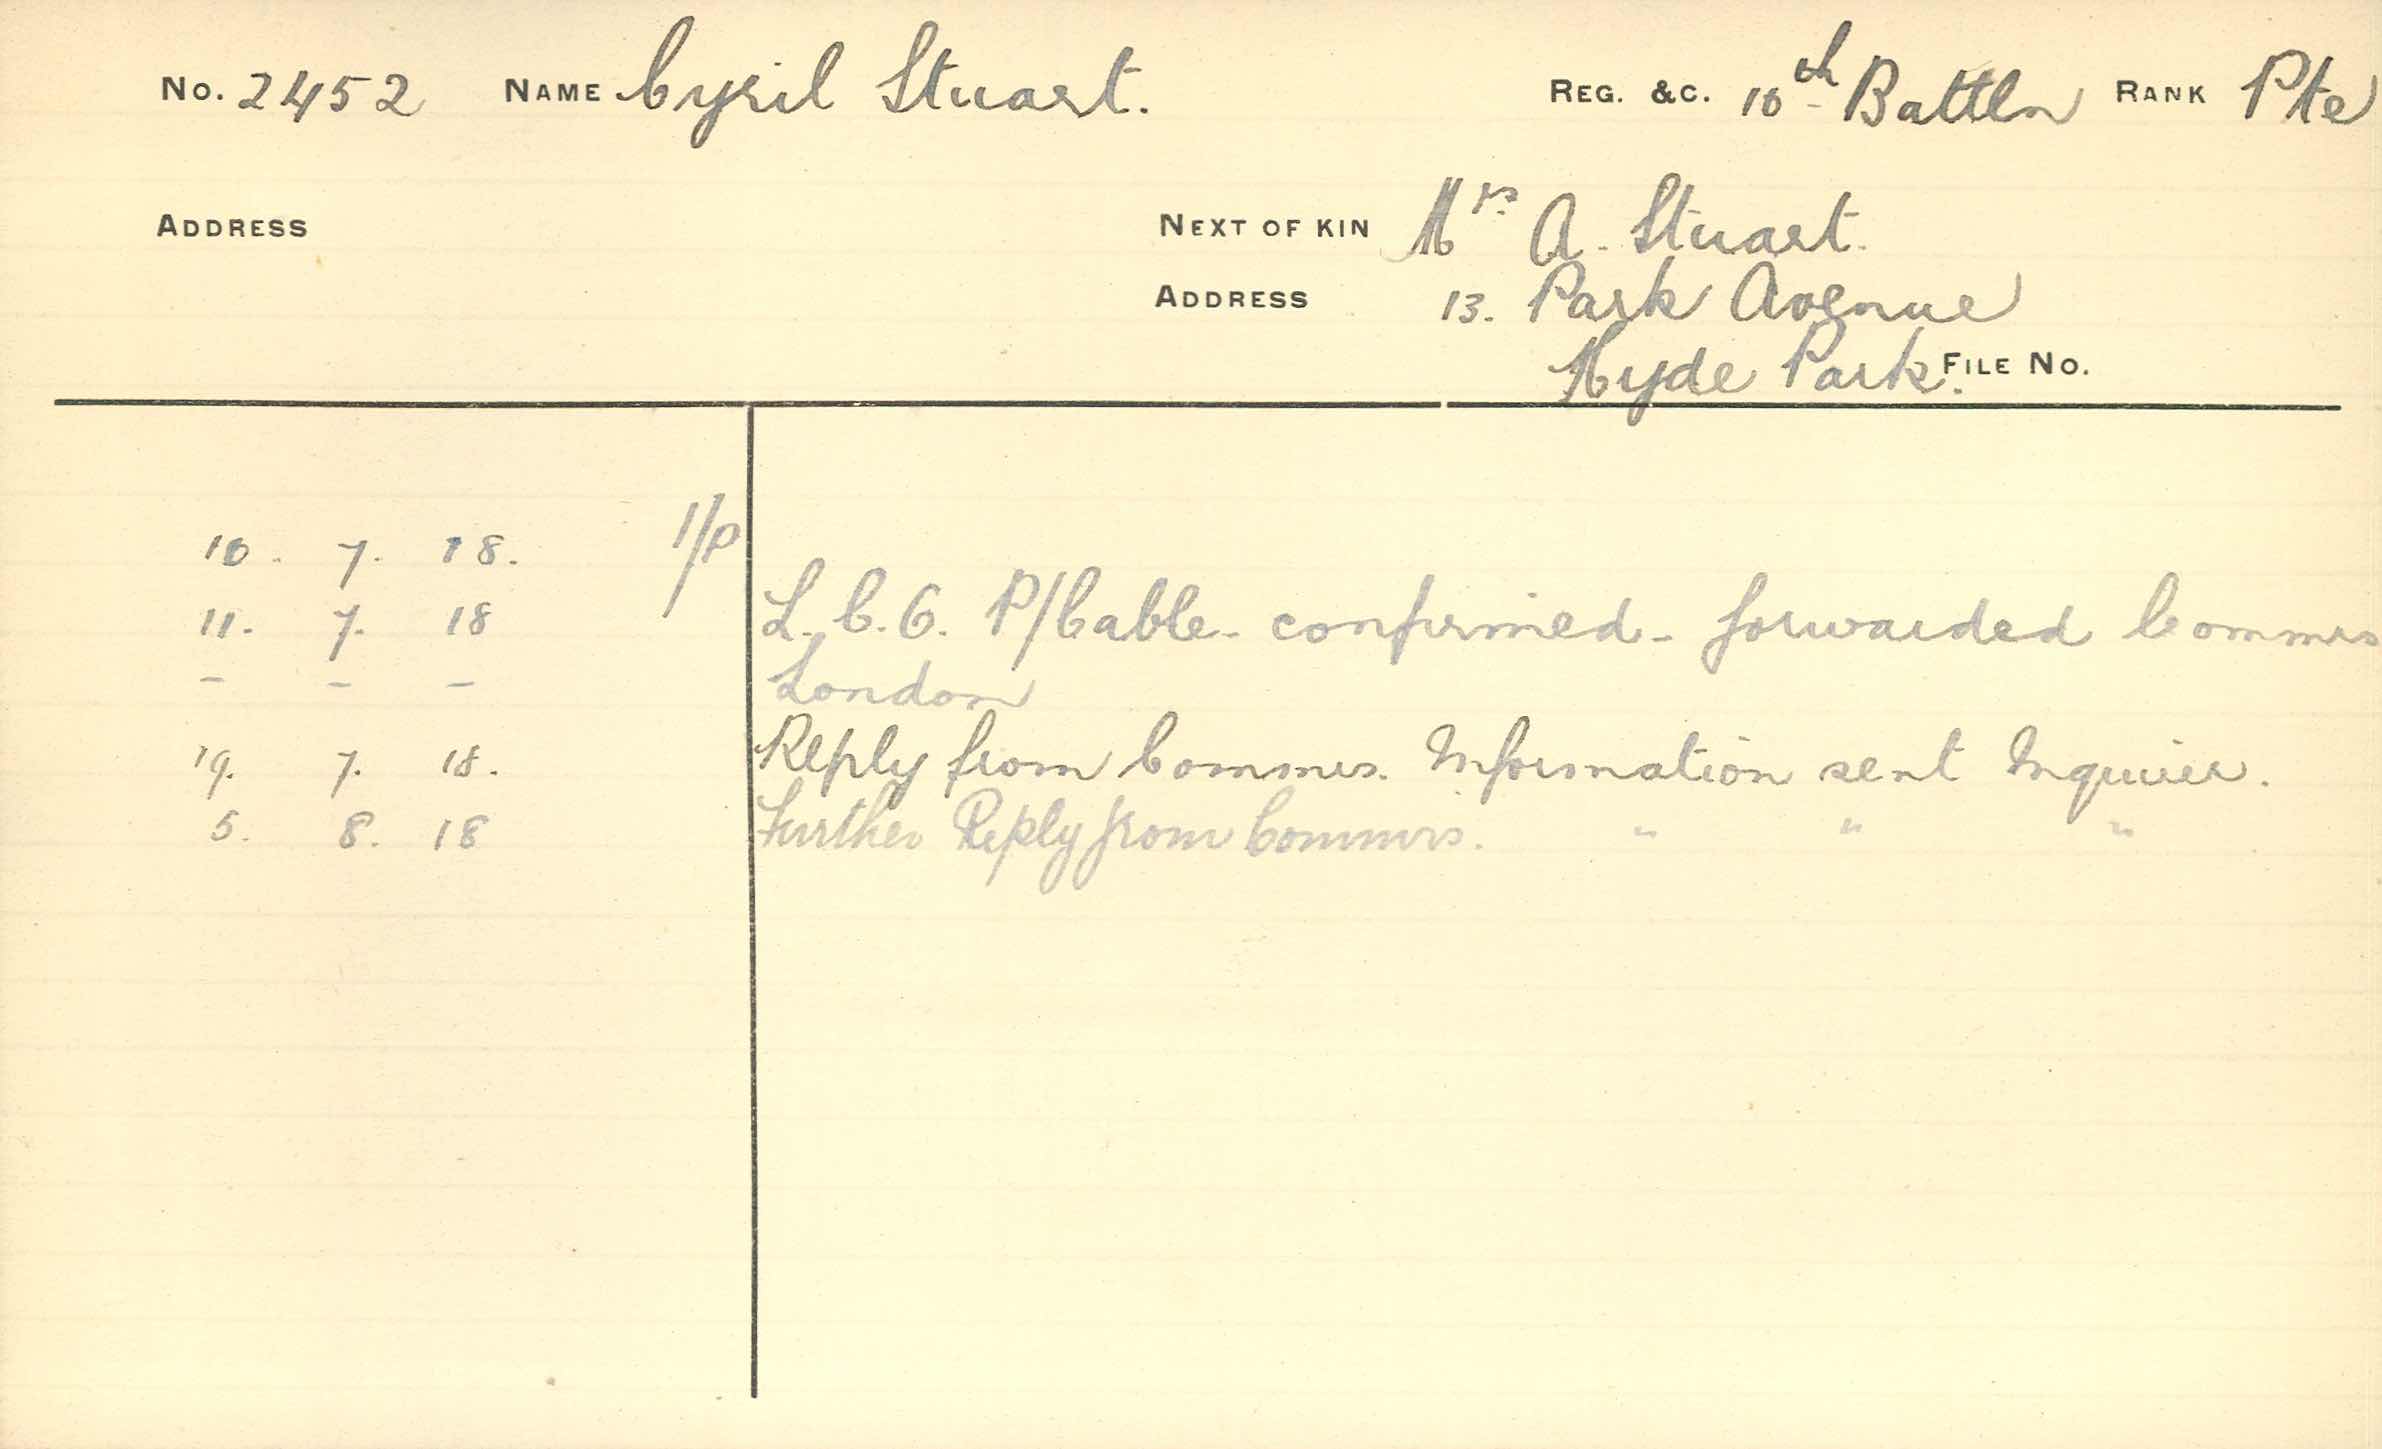 No. 2452 NAME Cyril Stuart. REG. &C. 10th Battln RANK Pte
ADDRESS NEXT OF KIN Mrs A. Stuart.
ADDRESS 13. Park Avenue
Hyde Park. FILE No.
10. 7. 18. 1/P
11. 7. 18 L. C. O. P/Cable - confirmed - forwarded Commrs
- - - London
19. 7. 18. Reply from Commrs. Information sent Inquirer.
5. 8. 18 Further Reply from Commrs. " " "